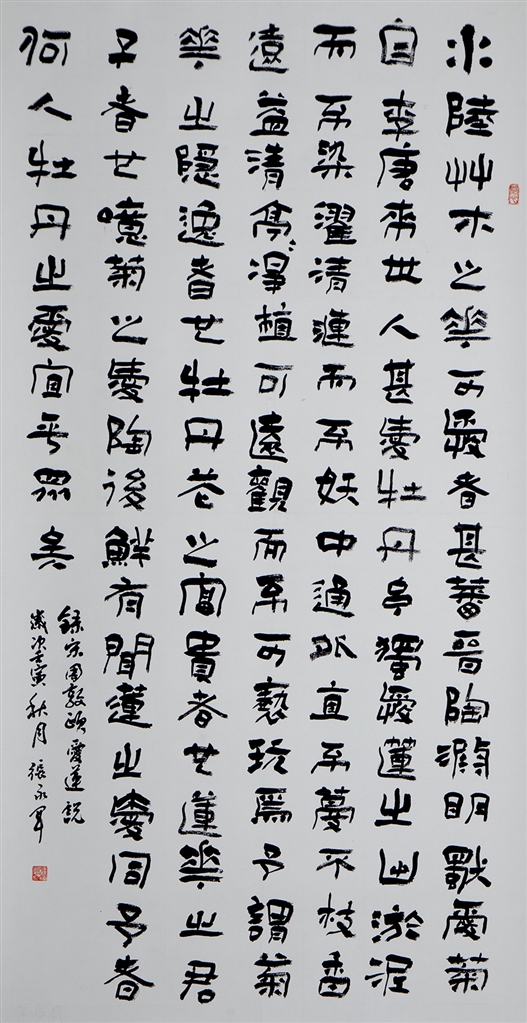 水陸艸木之華可愛者甚蕃晉陶淵明獨愛菊
自李唐來世人甚愛牡丹予獨愛蓮之出淤泥
而不染濯清漣而不妖中通外直不蔓不枝香
遠益清亭〻淨植可遠觀而不可褻玩焉予謂菊
華之隱逸者也牡丹花之富貴者也蓮華之君
子者也噫菊之愛陶後鮮有聞蓮之愛同予者
何人牡丹之愛宜乎眾矣
錄宋周敦頤愛蓮說
歲次壬寅秋月張永軍